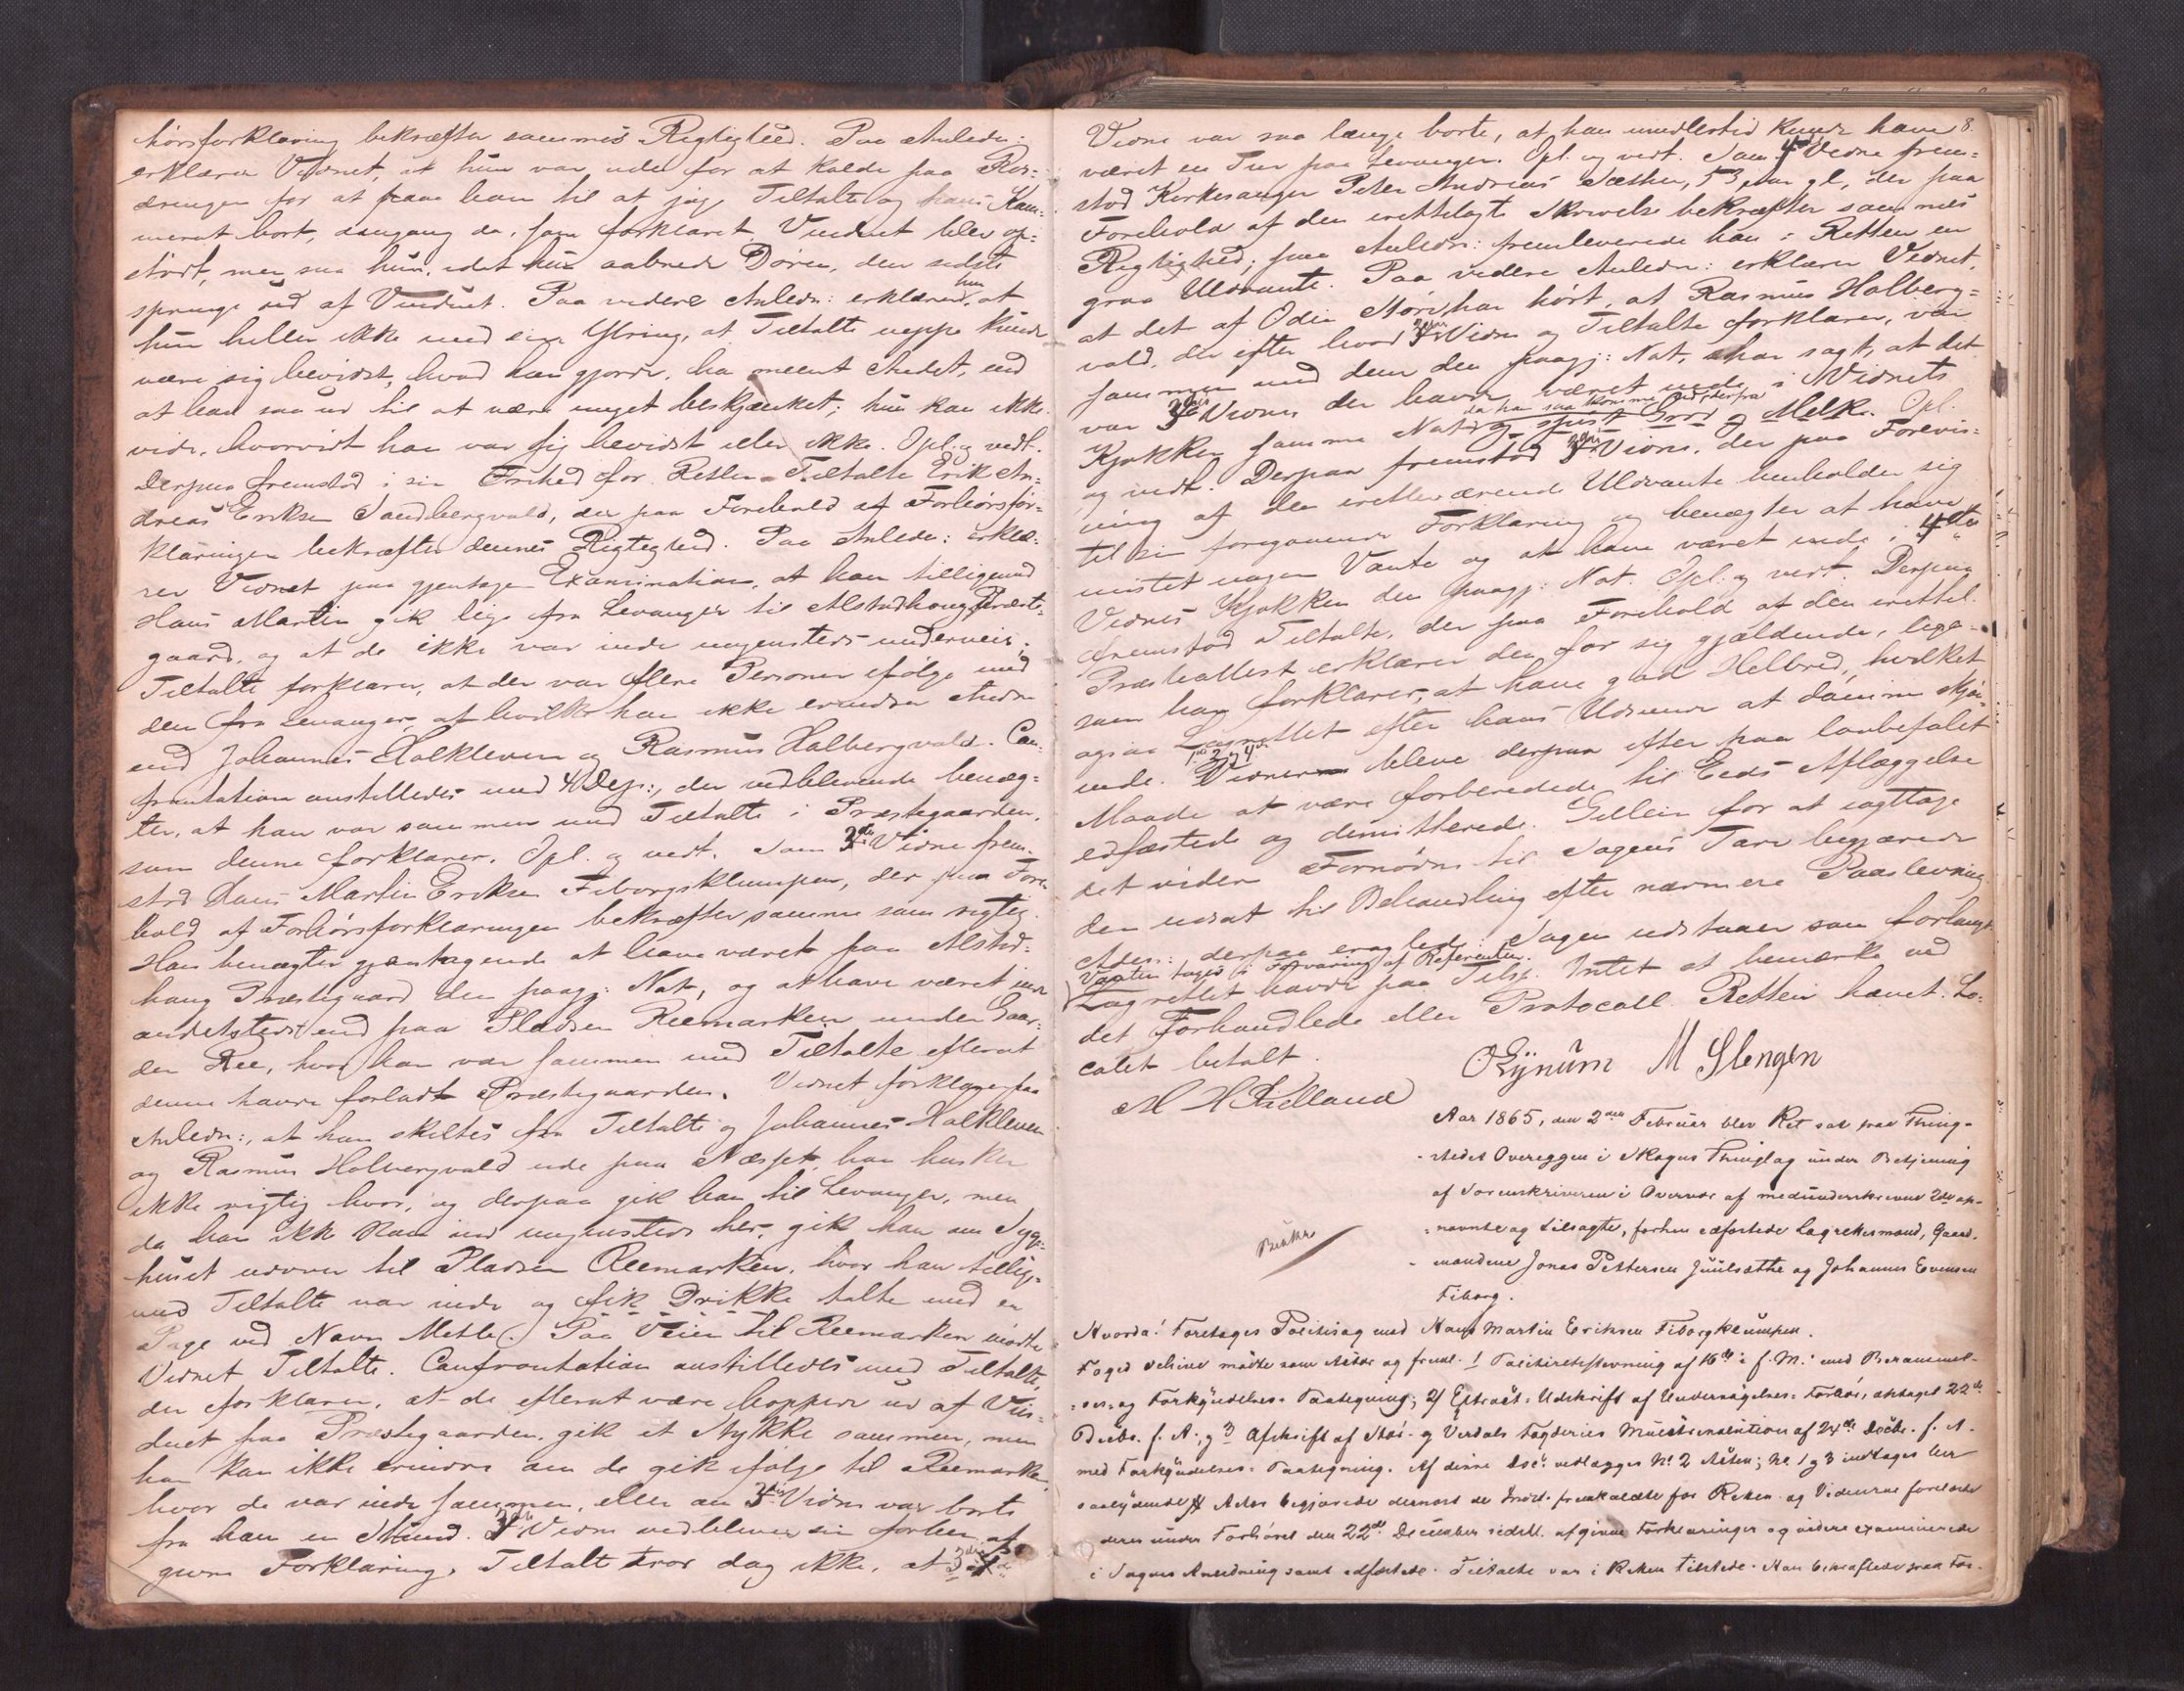 hörsforklaring bekræfter sammes Rigtighed. Paa Anledn:
erklærer Vidnet, at hun var ude for at kalde paa
drengen for at faae ham til at jage Tiltalte og hans Kam-
merat bort, dengang da, som forklaret, Vinduet blev op-
stödt, men saa hun, idet hun aabnede Dören, den sidste
springe ud af Vinduet. Paa videre Anledn: erklærede hun, at
hun heller ikke med sin Ytring, at Tiltalte neppe kunde
være sig bevidst, hvad han gjorde, har meent Andet, end
at han saa ud til at være meget beskjænket; hun kan ikke
vide, hvorvidt han var sig bevidst eller ikke. Opl. og vedt.
Derpaa fremstod i sin Frihed for Retten Tiltalte Erik An-
dreas Eriksen Sandbergvald, der paa Forehold af Forhörsfor-
klaringen bekræfter dennes Rigtighed. Paa Anledn: erklæ-
rer Vidnet paa gjentagen Examination, at han tilligemed
Hans Martin gik lige fra Levanger til Alstadhoug Præste-
gaard, og at de ikke var inde nogensteds underveis.
Tiltalte forklarer, at der var flere Personer ifölge med
dem fra Levanger, af hvilke han ikke erindrer Andre
end Johannes Halkleven og Rasmus Halbergvald. Con-
frontation anstilledes med Dep:, der vedblivende benæg-
ter, at han var sammen med Tiltalte i Præstegaarden,
som denne forklarer. Opl. og vedt. Som 3die Vidne frem-
stod Hans Martin Eriksen Fiborgsklumpen, der paa Fore-
hold af Forhörsforklaringen bekræfter samme som rigtig.
Han benægter gjentagende at have været paa Alstad-
houg Præstegaard den paagj: Nat, og at have været inde
andetsteds end paa Pladsen Reemarken under Gaar-
den Ree, hvor han var sammen med Tiltalte efterat
denne havde forladt Præstegaarden. Vidnet forklarer paa
Anledn:, at han skiltes fra Tiltalte og Johannes Halkleven
og Rasmus Halbergvald ude paa Næsset, han husker
ikke rigtig hvor, og derpaa gik han til Levanger, men
da han ikke kom ind nogensteds her, gik han om Syge-
huset udover til Pladsen Reemarken, hvor han tillige-
med Tiltalte var inde og fik Drikke, talte med en
Pige ved Navn Methe. Paa Veien til Reemarken mödte
Vidnet Tiltalte. Confrontation anstilledes med Tiltalte,
der forklarer, at de efterat være hoppede ud af Vin-
duet paa Præstegaarden, gik et Stykke sammen, men
han kan ikke erindre om de gik ifölge til Reemarken
hvor de var inde sammen, eller om 3die Vidne var borte
fra ham en Stund. 3die Vidne vedblever sin forhen af-
givne Forklaring. Tiltalte tror dog ikke, at 3die
8.
Vidne var saa længe borte, at han imidlertid kunde have
været en Tur paa Levanger. Opl. og vedt. Som 4de Vidne frem-
stod Kirkesanger Peter Andreas Sæther, 53 Aar gl, der paa
Forehold af den irettelagte Skrivelse bekræfter sammes
Rigtighed; paa Anledn: fremleverede han i Retten en
graa Uldvante. Paa videre Anledn: erklærer Vidnet,
at det af Odin har hört, at Rasmus Halberg-
vald, der efter hvad 3die Vidne og Tiltalte forklarer, var
sammen med dem den paagj: Nat, skar sagt, at det
var 3die Vidne der havde været inde i Vidnets
Kjökken samme Nat da han saa komme ud derfra og spist Gröd og Melk. Opl.
og vedt. Derpaa fremstod 3die Vidne, der paa Forevis-
ning af den iretteværende Uldvante henholder sig
til sin foregaaende Forklaring og benægter at have
mistet nogen Vante og at have været inde i 4de
Vidnes Kjökken den paagj: Nat. Opl. og vedt. Derpaa
fremstod Tiltalte, der paa Forehold af den irettel.
Præsteattest erklærer den for sig gjældende, lige-
som han forklarer, at have god Helbred, hvilket
ogsaa Lagrettet efter hans Udseende at dömme skjön-
nede. 1ste 2 og 4de Vidner bleve derpaa efter paa lovbefalet
Maade at være forberedede til Eeds Aflæggelse
edfæstede og demitterede. Gellein for at iagttage
det videre Fornödne til Sagens Tarv begjærede
den udsat til Behandling efter nærmere Paastevning.
Aden: derpaa eraglede: Sagen udstaaer som forlangt.
Vanten toges i Forvaring af Referenten.
Lagrettet havde paa Tilsp. Intet at bemærke ved
det Forhandlede eller Protocoll. Retten hævet. Lo-
calet betalt.
M H Kielland
O Rynum M Slengen
Aar 1865, den 2den Februar blev Ret sat paa Thing-
stedet Overeggen i Skogns Thinglag under Betjening
af Sorenskriveren i Overvær af medunderskrevne 2de op-
nævnte og tilsagte, forhen edfæstede Lagrettesmænd, Gaard-
mændene Jonas Pettersen Juulsæthe og Johannes Evensen
Fiborg.
Hvorda: Foretages Politisag mod Hans Martin Eriksen Fiborgklumpen.
Foged mödte som Actor og freml. 1 Politiretsstevning af 16de i f. M. med Berammel-
ses- og Forkyndelses-Paategning; 2 Extract-Udskrift af Undersögelses-Forhör, optaget 22de
Decbr. f. A., og 3 Afskrift af Stör- og Verdals Fogderies Mulctsresolution af 24de Decbr. f. A.
med Forkyndelses-Paategning. Af disse Doc: vedlægges No 2 Akten; No 1 og 3 indtages her
saalydende Actor begjærede dernæst de fremkaldte for Retten og Vidnerne foreholdt
deres under Forhöret den 22de December sidstl. afgivne Forklaringer og videre examinerede
i Sagens Anledning samt edfæstede. Tiltalte var i Retten tilstede. Han bekræftede paa For-